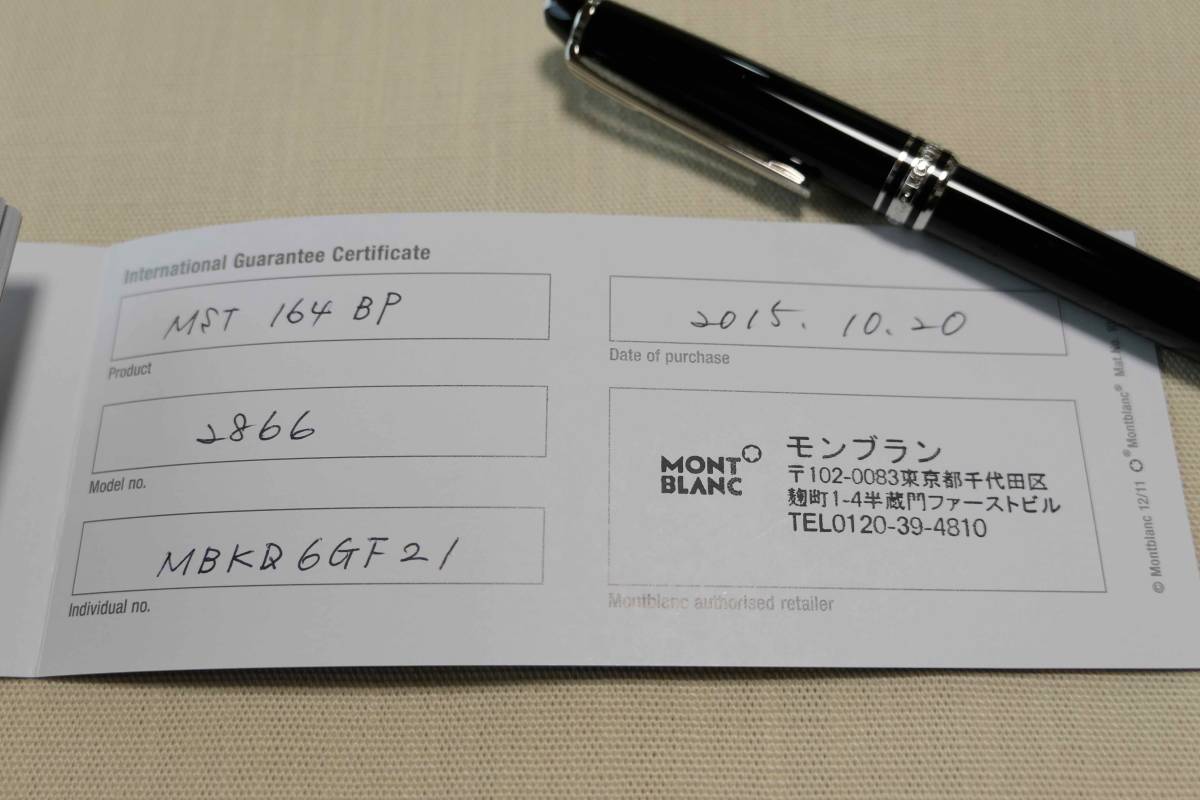 International Guarantee Certificate
MST 164 BP
Product
2866
Model no.
MBKQ6GF21
Individual no.
2015. 10. 20
Date of purchase
MONT
BLANC
モンブラン
〒102-0083東京都千代田区
麹町1-4半蔵門ファーストビル
TEL0120-39-4810
Montblanc authorised retailer
© Montblanc 12/11 ®Montblanc® Mat.